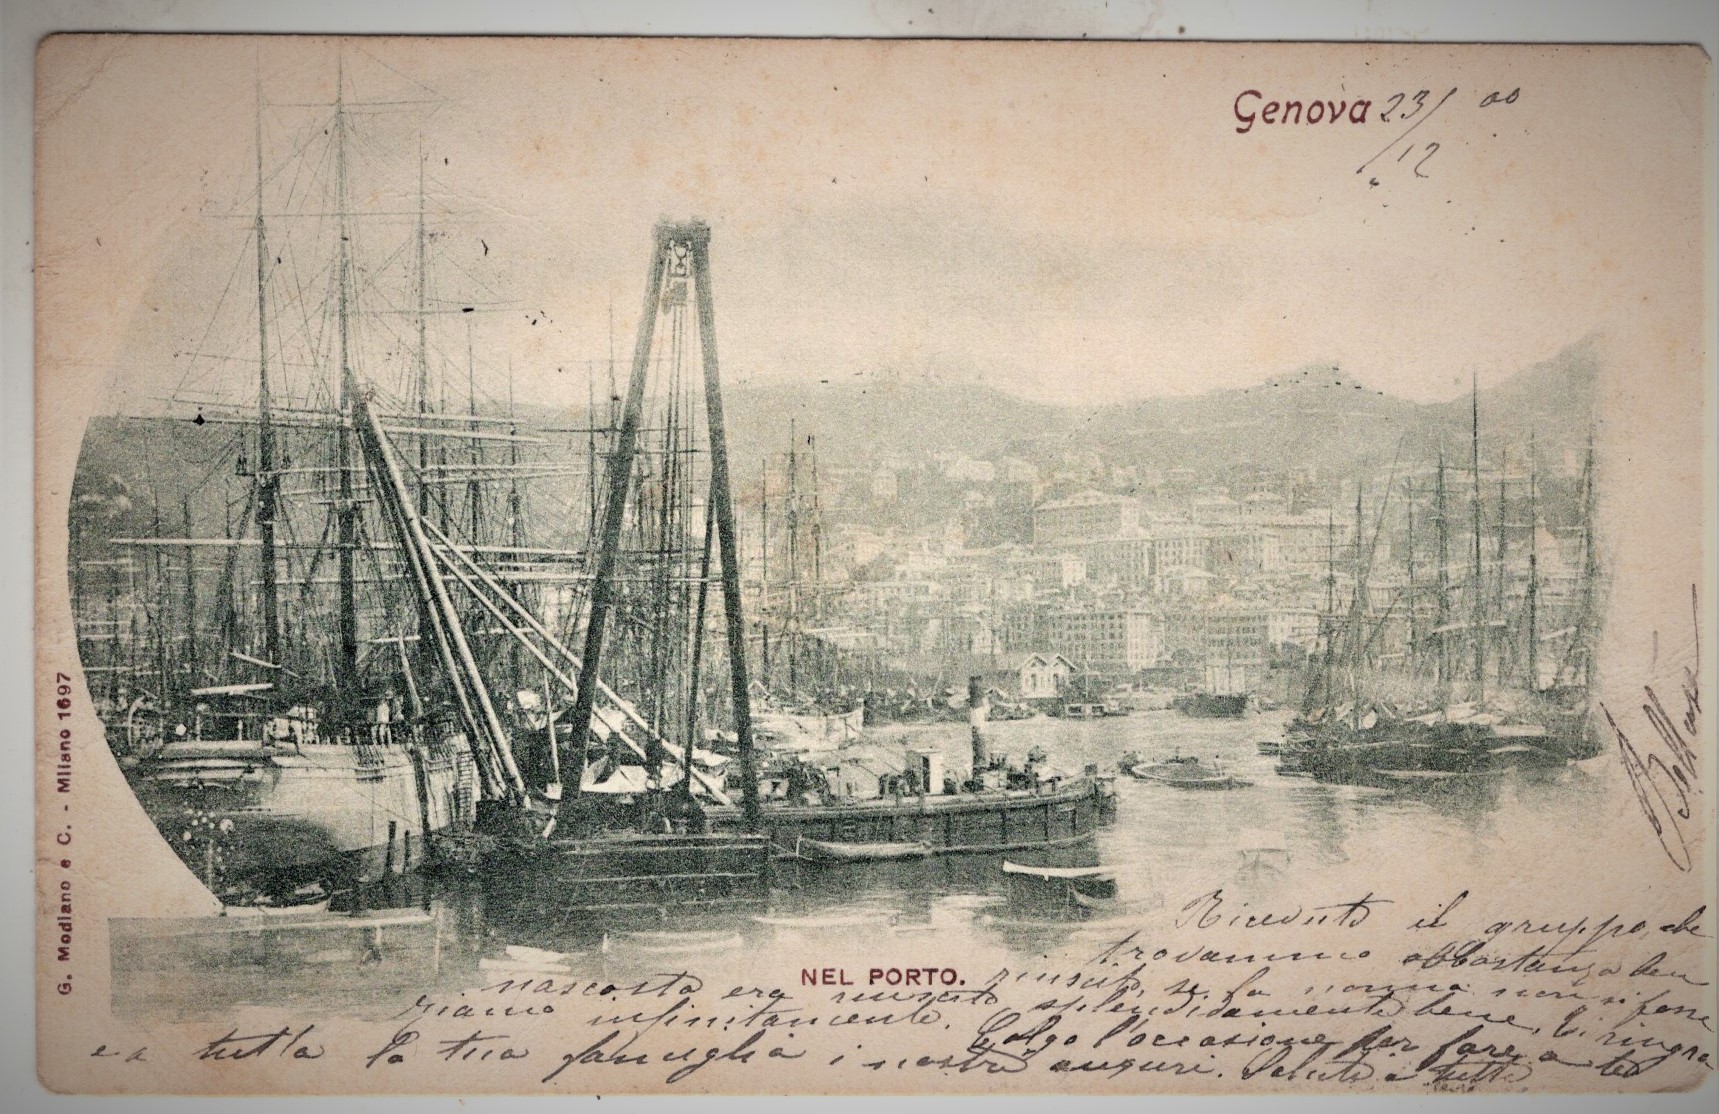 Genova 23/12 00
G. Modiano e C. - Milano 1697
NEL PORTO.
Ricevuto il gruppo, che
trovammo abbastanza ben
riuscito, se la nonna non si fosse
nascosta era riuscito splendidamente bene. Ti ringra
ziamo infinitamente. Colgo l'occasione per fare a te
e a tutta la tua famiglia i nostri auguri. Saluti a tutti